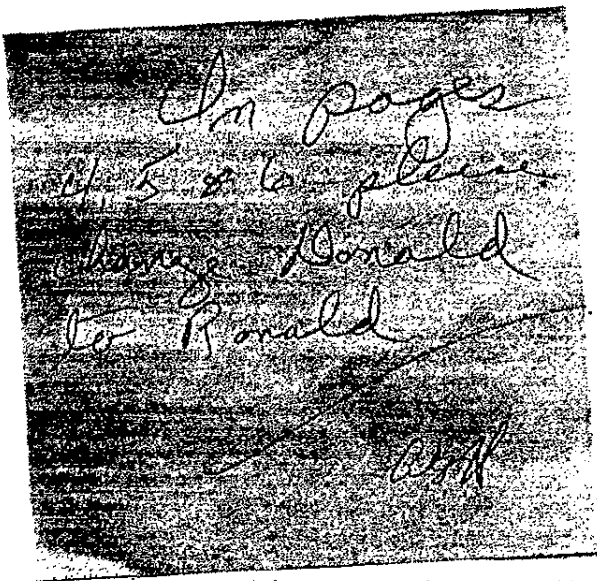 In pages
4, 5 & 6 please
change Donald
to Ronald